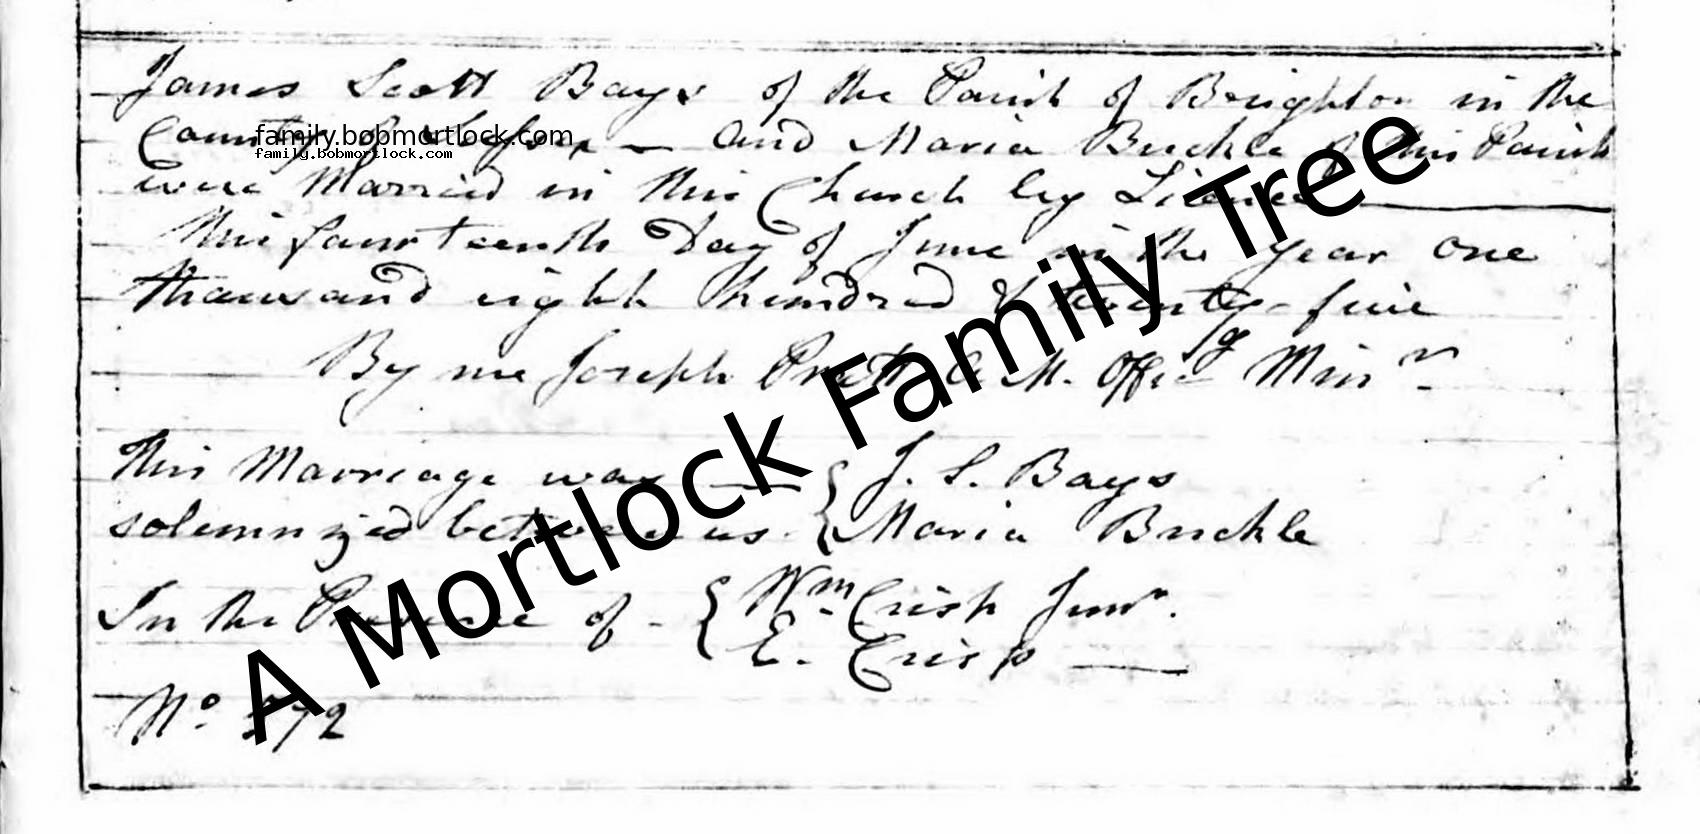 James Scott Bays of the Parish of Brighton in the
County of Sussex — and Maria Buckle of this Parish
family.bobmortlock.com
family.bobmortlock.com
were Married in this Church by Licence
this fourteenth Day of June in the year one
thousand eight hundred & twenty-five
By me Joseph Pratt A. M. Offic.g Minr
This Marriage was — { J. S. Bays
solemnized between us { Maria Buckle
In the Presence of - { Wm Crisp Junr.
E. Crisp —
No 272
A Mortlock Family Tree